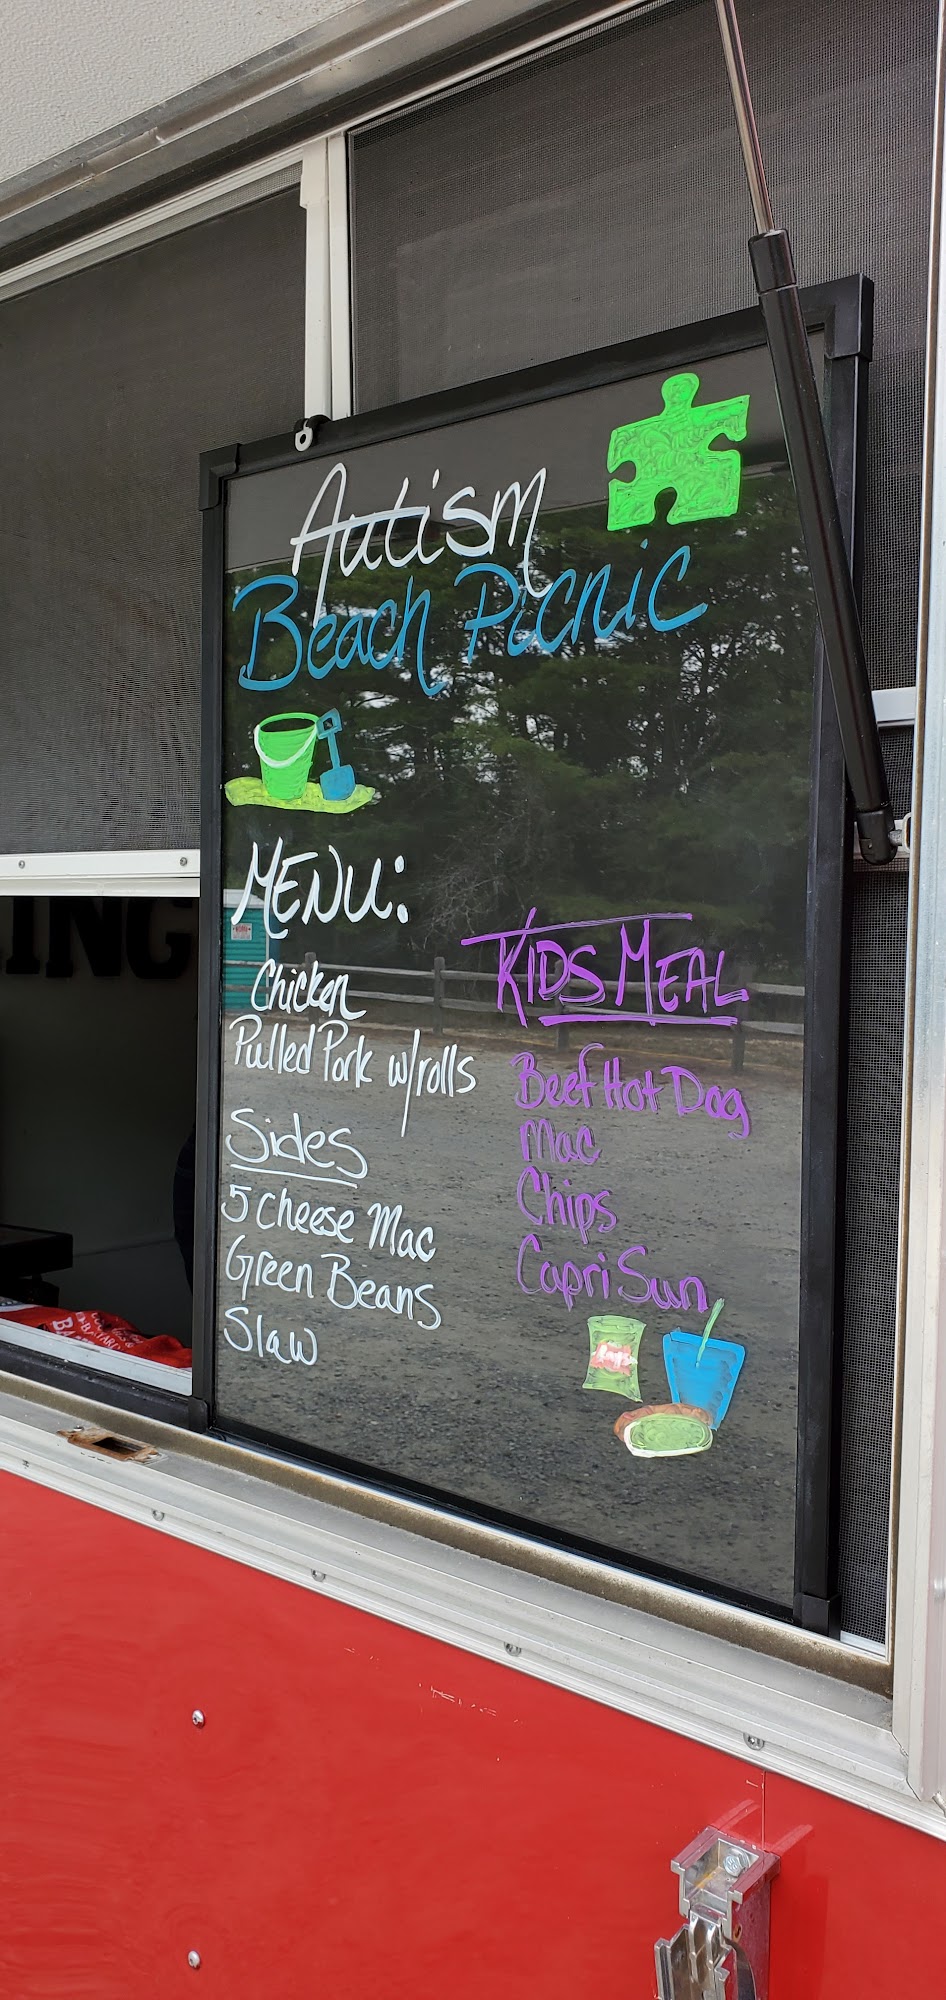 Autism
Beach Picnic
MENU:
Chicken
Pulled Pork w/rolls
Sides
5 Cheese Mac
Green Beans
Slaw
KIDS MEAL
Beef Hot Dog
Mac
Chips
Capri Sun
ING